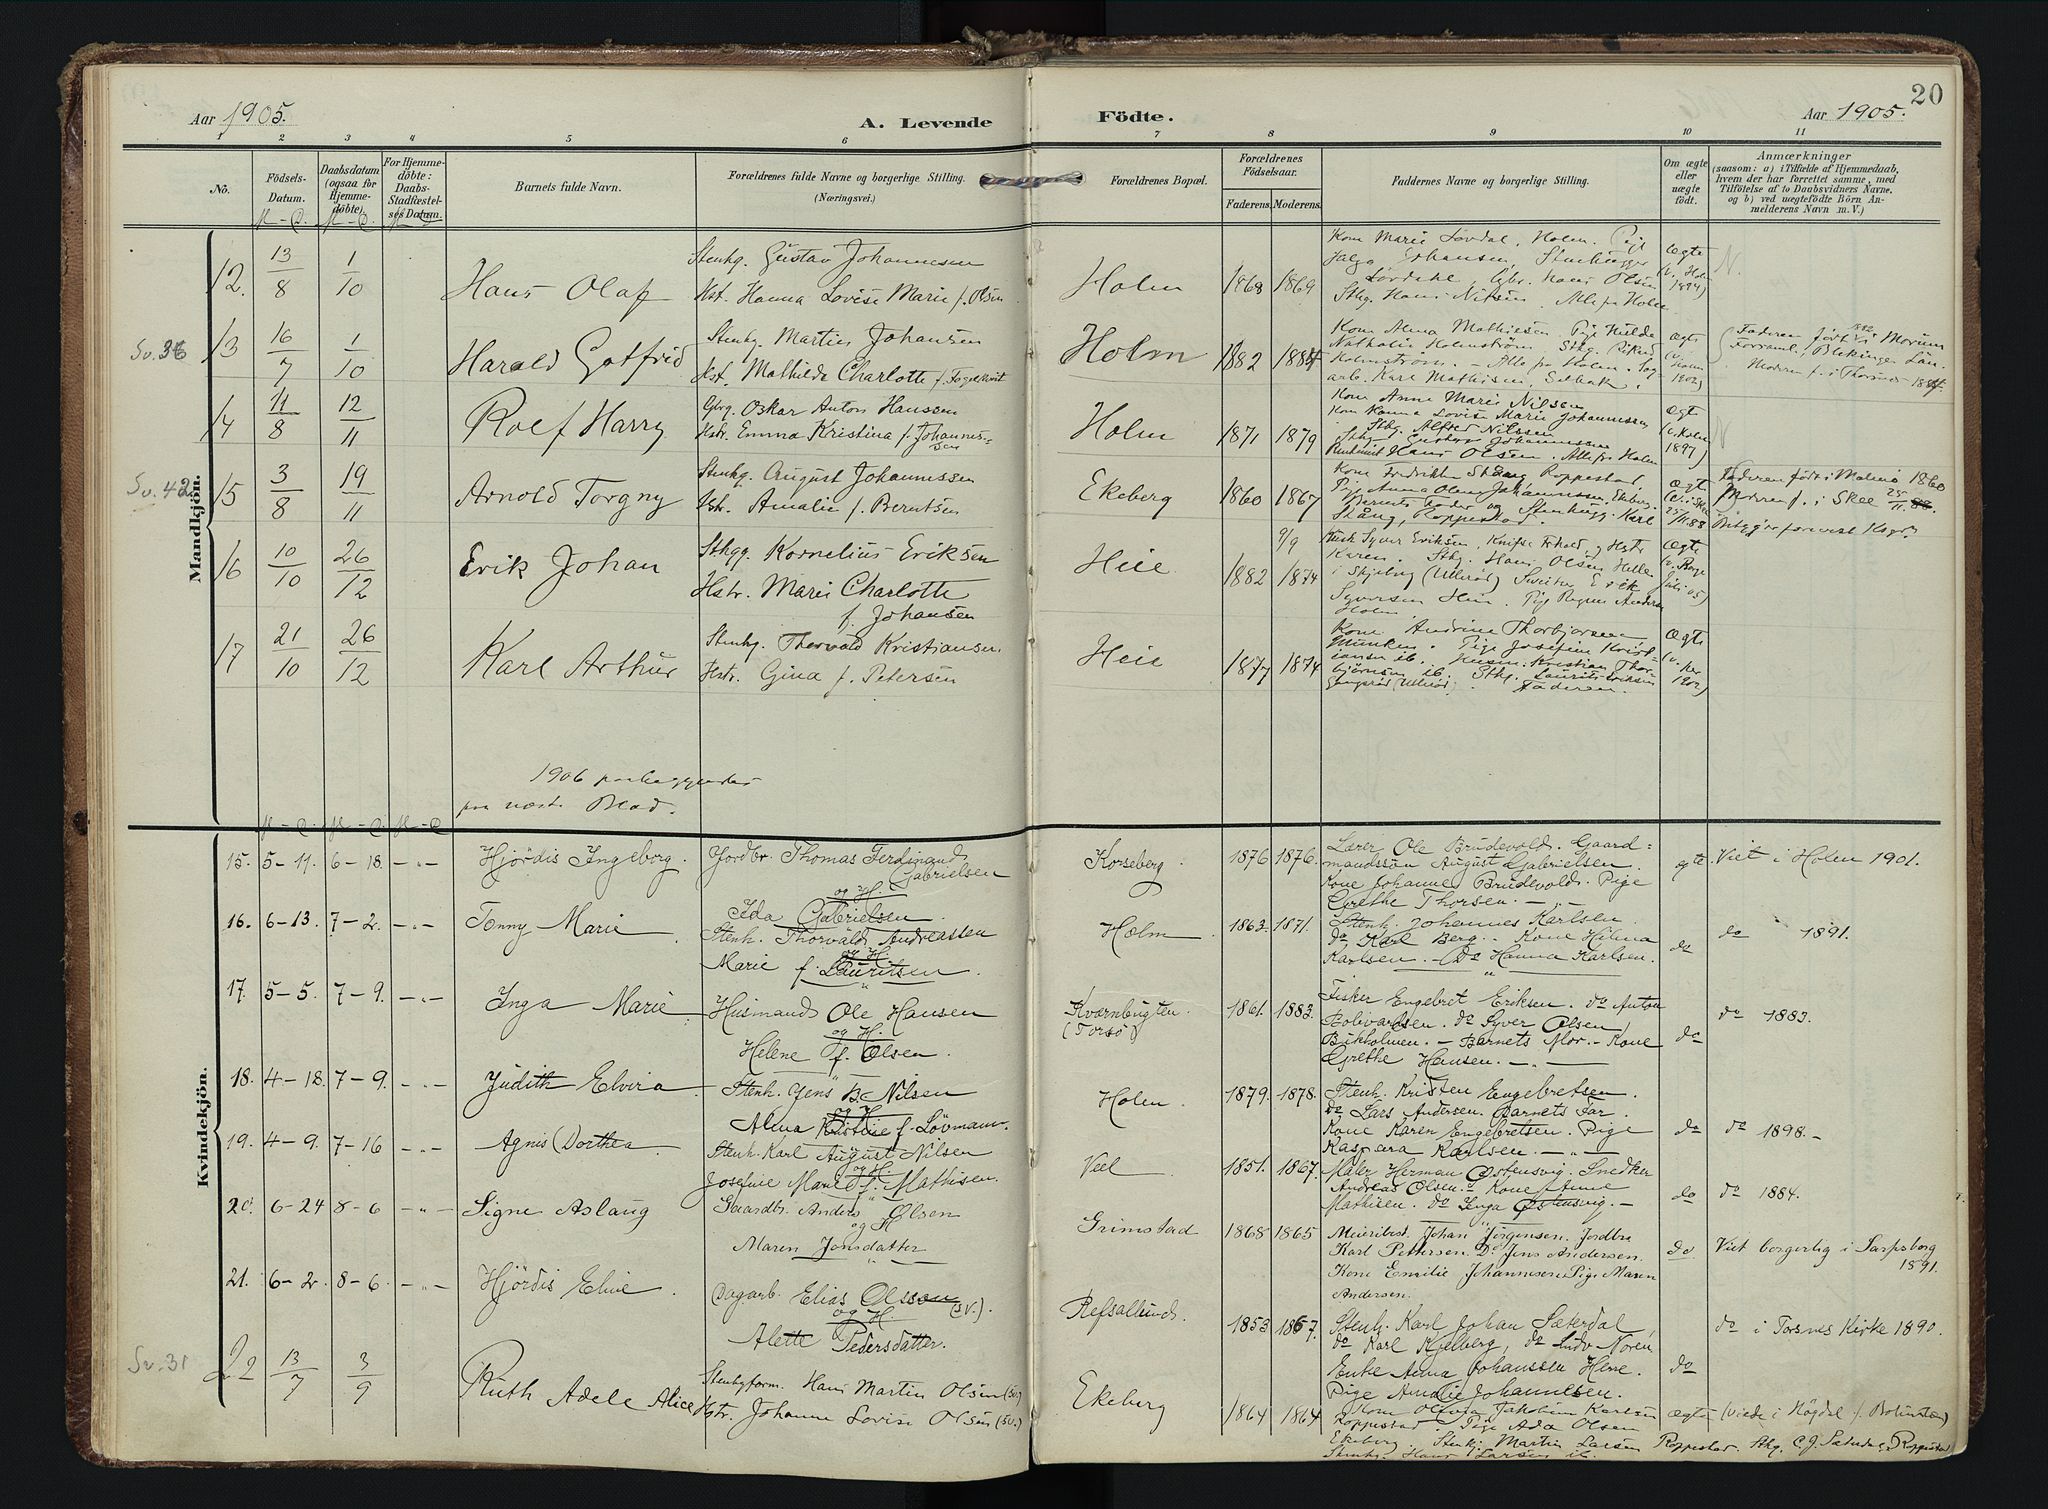 Aar 1905.
A. Levende
Födte.
Aar 1905.
20
1 2 3 4 5 6 7 8 9 10 11
No.
Födsels-
Datum.
Daabsdatum
(ogsaa for
Hjemme-
döbte)
For Hjemme-
döbte:
Daabs-
Stadfæstel-
ses Datum.
Barnets fulde Navn.
Forældrenes fulde Navne og borgerlige Stilling.
(Næringsvei.)
Forældrenes Bopæl.
Forældrenes
Födselsaar.
Faderens. Moderens.
Faddernes Navne og borgerlige Stilling.
Om ægte
eller
uægte
födt.
Anmærkninger
(saasom: a) i Tilfælde af Hjemmedaab,
hvem der har forrettet samme, med
Tilföielse af to Daabsvidners Navne,
og b) ved uægtefödte Börn An-
melderens Navn m. V.)
M - D. M - D. M - D.
Mandkjön.
12. 13/8 1/10 Hans Olaf
Stenhg. Gustav Johannesen
Hst. Hanna Lovise Marie f. Olsen
Holm 1868 1869
Kone Marie Løvdal, Holm. Pige
Johansen, Stenhugger
Løvdahl, Gbr. Hans Olsen
Sthg. Hans Nilsen. Alle fra Holm
Ægte
(v. Holm
1894)
N.
Sv. 36
13 16/7 1/10 Harald Gotfrid
Stenhg. Martin Johansen
Hst. Mathilde Charlotte f. Fogelkvist
Holm 1882 1884
Kone Alma Mathiesen. Pige Hulda
Nathalie Holmström Sthg. Rikard
Holmström. - Alle fra Holm. Dag-
arb. Karl Mathisen, Selbak.
Ægte
(v. Holm
1902)
Faderen født i Morum
Forsaml., Blekinge Län.
Moderen f. i Thorsnes 1884.
14 11/8 12/11 Rolf Harry
Gbrg. Oskar Anton Hansen
Hstr. Emma Kristina f. Johannes-
sen
Holm 1871 1879
Kone Anne Marie Nilsen
Kone Hanna Lovise Marie Johannessen
Sthg. Alfred Nilssen
Sthg. Gustav Johannessen
Hans Olsen. Alle fra Holm
Ægte
(v. Holm
1897)
N
Sv. 42
15 3/8 19/11 Arnold Torgny
Stenhg. August Johannessen
Hstr. Amalie f. Berntsen
Ekeberg 1860 1867
Kone Fredrikke Skäng Roppestad,
Pige Anna Olava Johannessen, Ekeberg.
Barnets Fader og Stenhugg. Karl
Skäng, Roppestad.
Ægte
(v. i Skee
25/11.88
Faderen født i Malmö 1860
Moderen f. i Skee
16 10/10 26/12 Erik Johan
Sthgg. Kornelius Eriksen
Hstr. Marie Charlotte
f. Johansen
Heie 1882 1874
9/9
Husm Syver Eriksen, og Hstr
Karen. Sthg. Hans Olsen Helle
i Skjeberg (Ullerød) Erik
Syversen Heie. Pige Ragna Andersen
Holm
Ægte
17 21/10 26/12 Karl Arthur
Stenhg. Thorvald Kristiansen
Hstr. Gina f. Petersen
Heie 1877 1874
Kone Andrine Thorbjørnsen
Munken. Pige Josefine Krist-
iansen ib. Husm. Kristian Thor-
bjørnsen ib. Sthg. Laurits Eriksen
(Ullerød). Faderen.
Ægte
1902)
1906 paabegyndes
paa næste Blad.
M - D. M - D. M - D
Kvindekjön.
15. 5-11. 6-18. -"- Hjördis Ingeborg.
Jordbr. Thomas Ferdinand
Gabrielsen
og H.
Ida Gabrielsen
Korseberg. 1876 1876.
Lærer Ole Brudevold. Gaard-
mandssøn August Gabrielsen.
Kone Johanne Brudevold. Pige
Grethe Thorsen. -"-
ægte Viet i Holm 1901.
16. 6-13. 7-2. -"- Tonny Marie
Stenh. Thorvald Andreassen
og H.
Marie f. Lauritsen.
Holm 1863. 1871.
Stenh. Johannes Karlsen.
do Karl Berg. - Kone Hilma
Karlsen. - do Hanna Karlsen.
do do 1891.
17. 5-5. 7-9. -"- Inga Marie
Husmand Ole Hansen
og H.
Helene f. Olsen.
Kvarnbugten
(Torsø) 1861. 1883.
Fisker Engebret Eriksen. do Anton
Bolivardsen. do Syver Olsen
Bikholmen. - Barnets Mor. - Kone
Grethe Hansen. -"-
do do 1883.
18. 4-18. 7-9. -"- Judith Elvira
Stenh. Jens B. Nilsen
og H.
Alma Kristine f. Lövmann.
Holm. 1879. 1878.
Stenh. Kristen Engebretsen.
do Lars Andersen. Barnets Far.
Kone Karen Engebretsen. Pige
Kaspara Karlsen. -"-
do do 1898. -
19. 4-9. 7-16 -"- Agnis Dorthea
Stenh. Karl August Nilsen
og H.
Josefine Marie f. Mathisen.
Veel 1851. 1867.
Maler Herman Østensvig. Snedker
Andreas Olsen. - Kone Anne
Mathisen. do Inga Østensvig. -
do do 1884.
20. 6-24 8-6 -"- Signe Aslaug
Gaardbr. Anders Olsen
og H
Maren Jonsdatter
Grimstad 1868 1865
Meieribest. Johan Jörgensen. Jordbr.
Karl Pettersen. Do Jens Andersen.
Kone Emilie Johannesen. Pige Maren
Andersen.
do. Viet borgerlig i Sarpsborg
1891.
21. 6-2. 8-6. -"- Hjördis Eline
Dagarb. Elias Olsson (sv.).
og H.
Alette Pedersdatter.
Refsallund. 1853 1867.
Stenh. Karl Johan Sæterdal
do Karl Kjelberg, do Ludv Norén
Enke Anna Johanssen Hene.
Pige Amalie Johannesen.
do do i Torsnes Kirke 1890.
Sv. 31
22 13/7 3/9 Ruth Adele Alice
Stenhgform. Hans Martin Olsen (sv.)
Hstr. Johanne Lovise Olsen (sv.)
Ekeberg 1864 1864
Kone Olivia Jakobine Karlsen
Roppestad. Pige Ada Olsen
Ekeberg Stenhg. Martin Larsen Roppestad. Sthg. C. J. Sæterdal, Roppestad
Stenhg. Hans Larsen ib.
Ægte (viede i Högdal f.